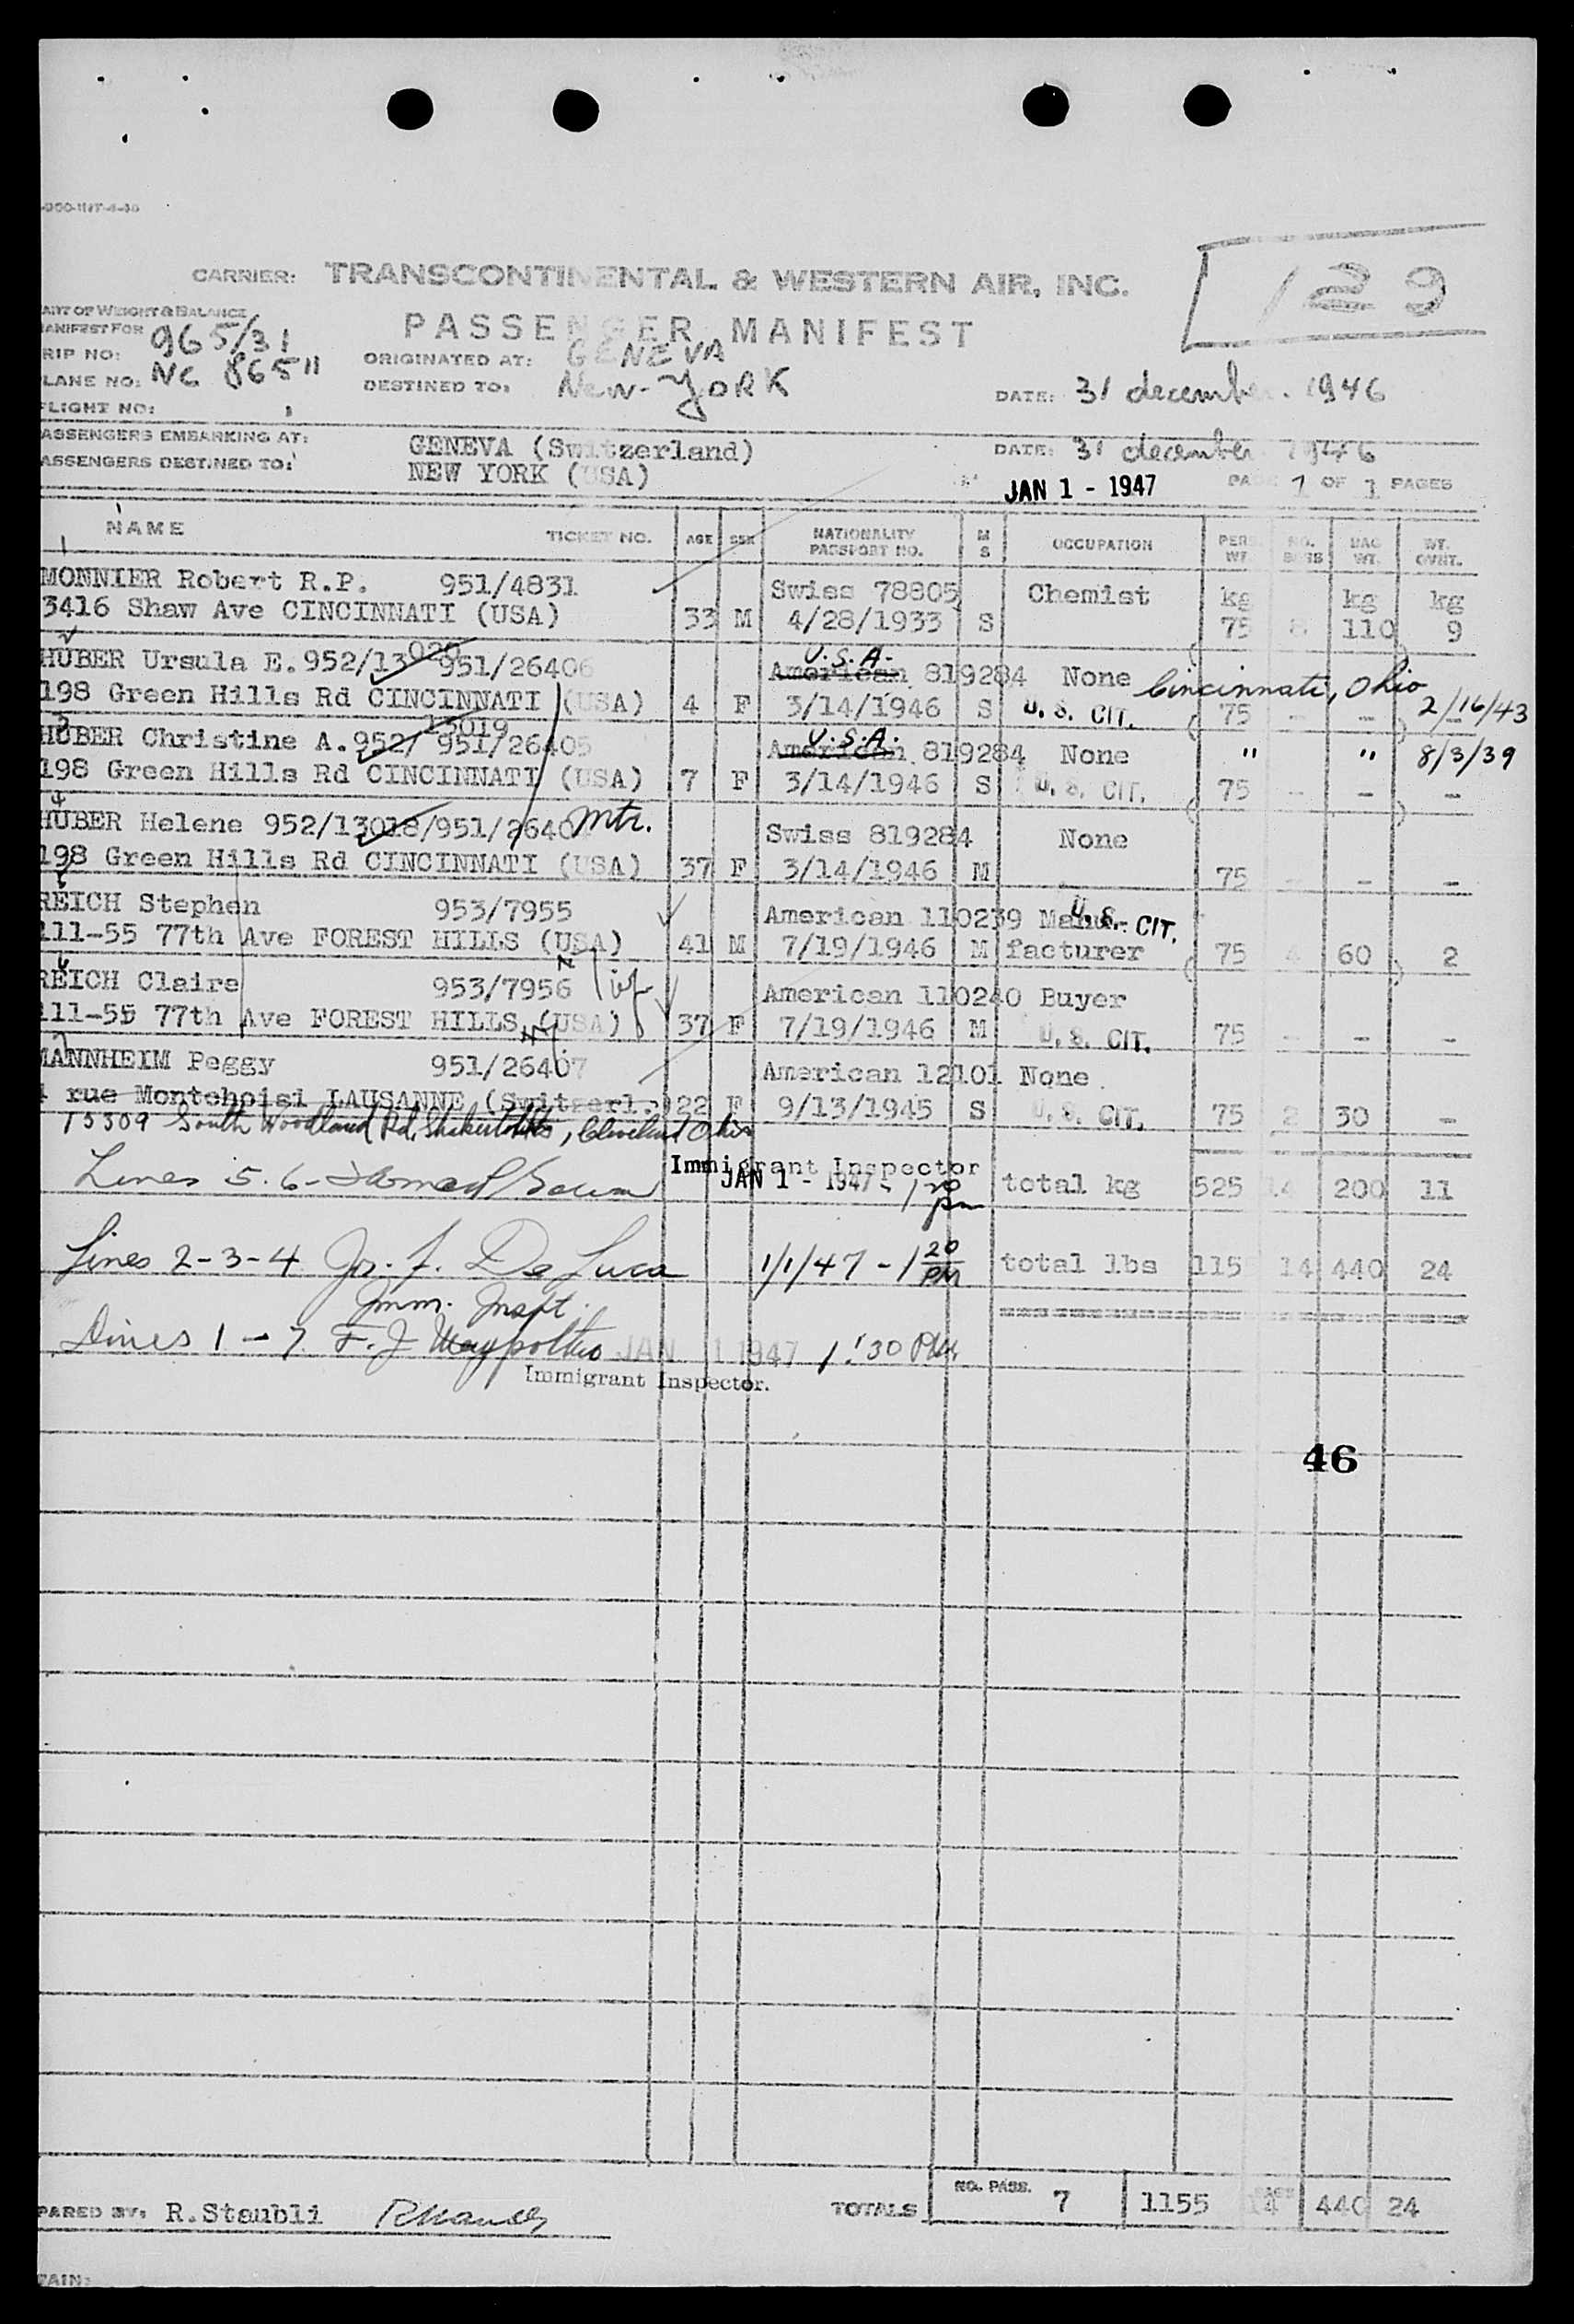 CARRIER: TRANSCONTINENTAL & WESTERN AIR, INC.
129
PASSENGER MANIFEST
PART OF WEIGHT & BALANCE
MANIFEST FOR
TRIP NO: 965/31
PLANE NO: NC 86511
FLIGHT NO:
ORIGINATED AT: GENEVA
DESTINED TO: New-YORK
DATE: 31 december 1946
ASSENGERS EMBARKING AT: GENEVA (Switzerland) DATE: 31 december 1946
ASSENGERS DESTINED TO: NEW YORK (USA)
JAN 1 - 1947 PAGE 1 OF 1 PAGES
NAME TICKET NO. AGE SEX NATIONALITY PASSPORT NO. M S OCCUPATION PERS. WT. NO. BAGS BAG WT. WT. OVHT.
1
MONNIER Robert R.P. 951/4831 Swiss 78805 Chemist kg kg kg
3416 Shaw Ave CINCINNATI (USA) 33 M 4/28/1933 S 75 8 110 9
HUBER Ursula E. 952/13020 951/26406 American U.S.A. 819284 None Cincinnati, Ohio
198 Green Hills Rd CINCINNATI (USA) 4 F 3/14/1946 S U. S. CIT. 75 - - - 2/16/43
3
HUBER Christine A. 952/13019 951/26405 American U.S.A. 819284 None " " 8/3/39
198 Green Hills Rd CINCINNATI (USA) 7 F 3/14/1946 S U. S. CIT. 75 - - -
4
HUBER Helene 952/13018/951/2640 Mtr. Swiss 819284 None
198 Green Hills Rd CINCINNATI (USA) 37 F 3/14/1946 M 75 - - -
REICH Stephen 953/7955 American 110239 Manu- U. S. CIT.
111-55 77th Ave FOREST HILLS (USA) 41 M 7/19/1946 M facturer 75 4 60 2
REICH Claire 953/7956 American 110240 Buyer
111-55 77th Ave FOREST HILLS (USA) 37 F 7/19/1946 M U. S. CIT. 75 - - -
MANNHEIM Peggy 951/26407 American 12101 None
rue Montchoisi LAUSANNE (Switzerl.) 22 F 9/13/1945 S U. S. CIT. 75 2 30 -
15509 South Woodland Rd, Shaker Hts, Cleveland Ohio
Immigrant Inspector
Lines 5. 6 - JAN 1 - 1947 - 1 20 pm total kg 525 14 200 11
Lines 2-3-4 Jr. J. De Luca 1/1/47 - 1 20 PM total lbs 115 14 440 24
Imm. Inspt.
Lines 1 - 7. F. J. JAN 1 1947 1:30 PM
Immigrant Inspector.
46
PARED BY: R.Staubli
TOTALS NO. PASS. 7 1155 14 440 24
TAIN: